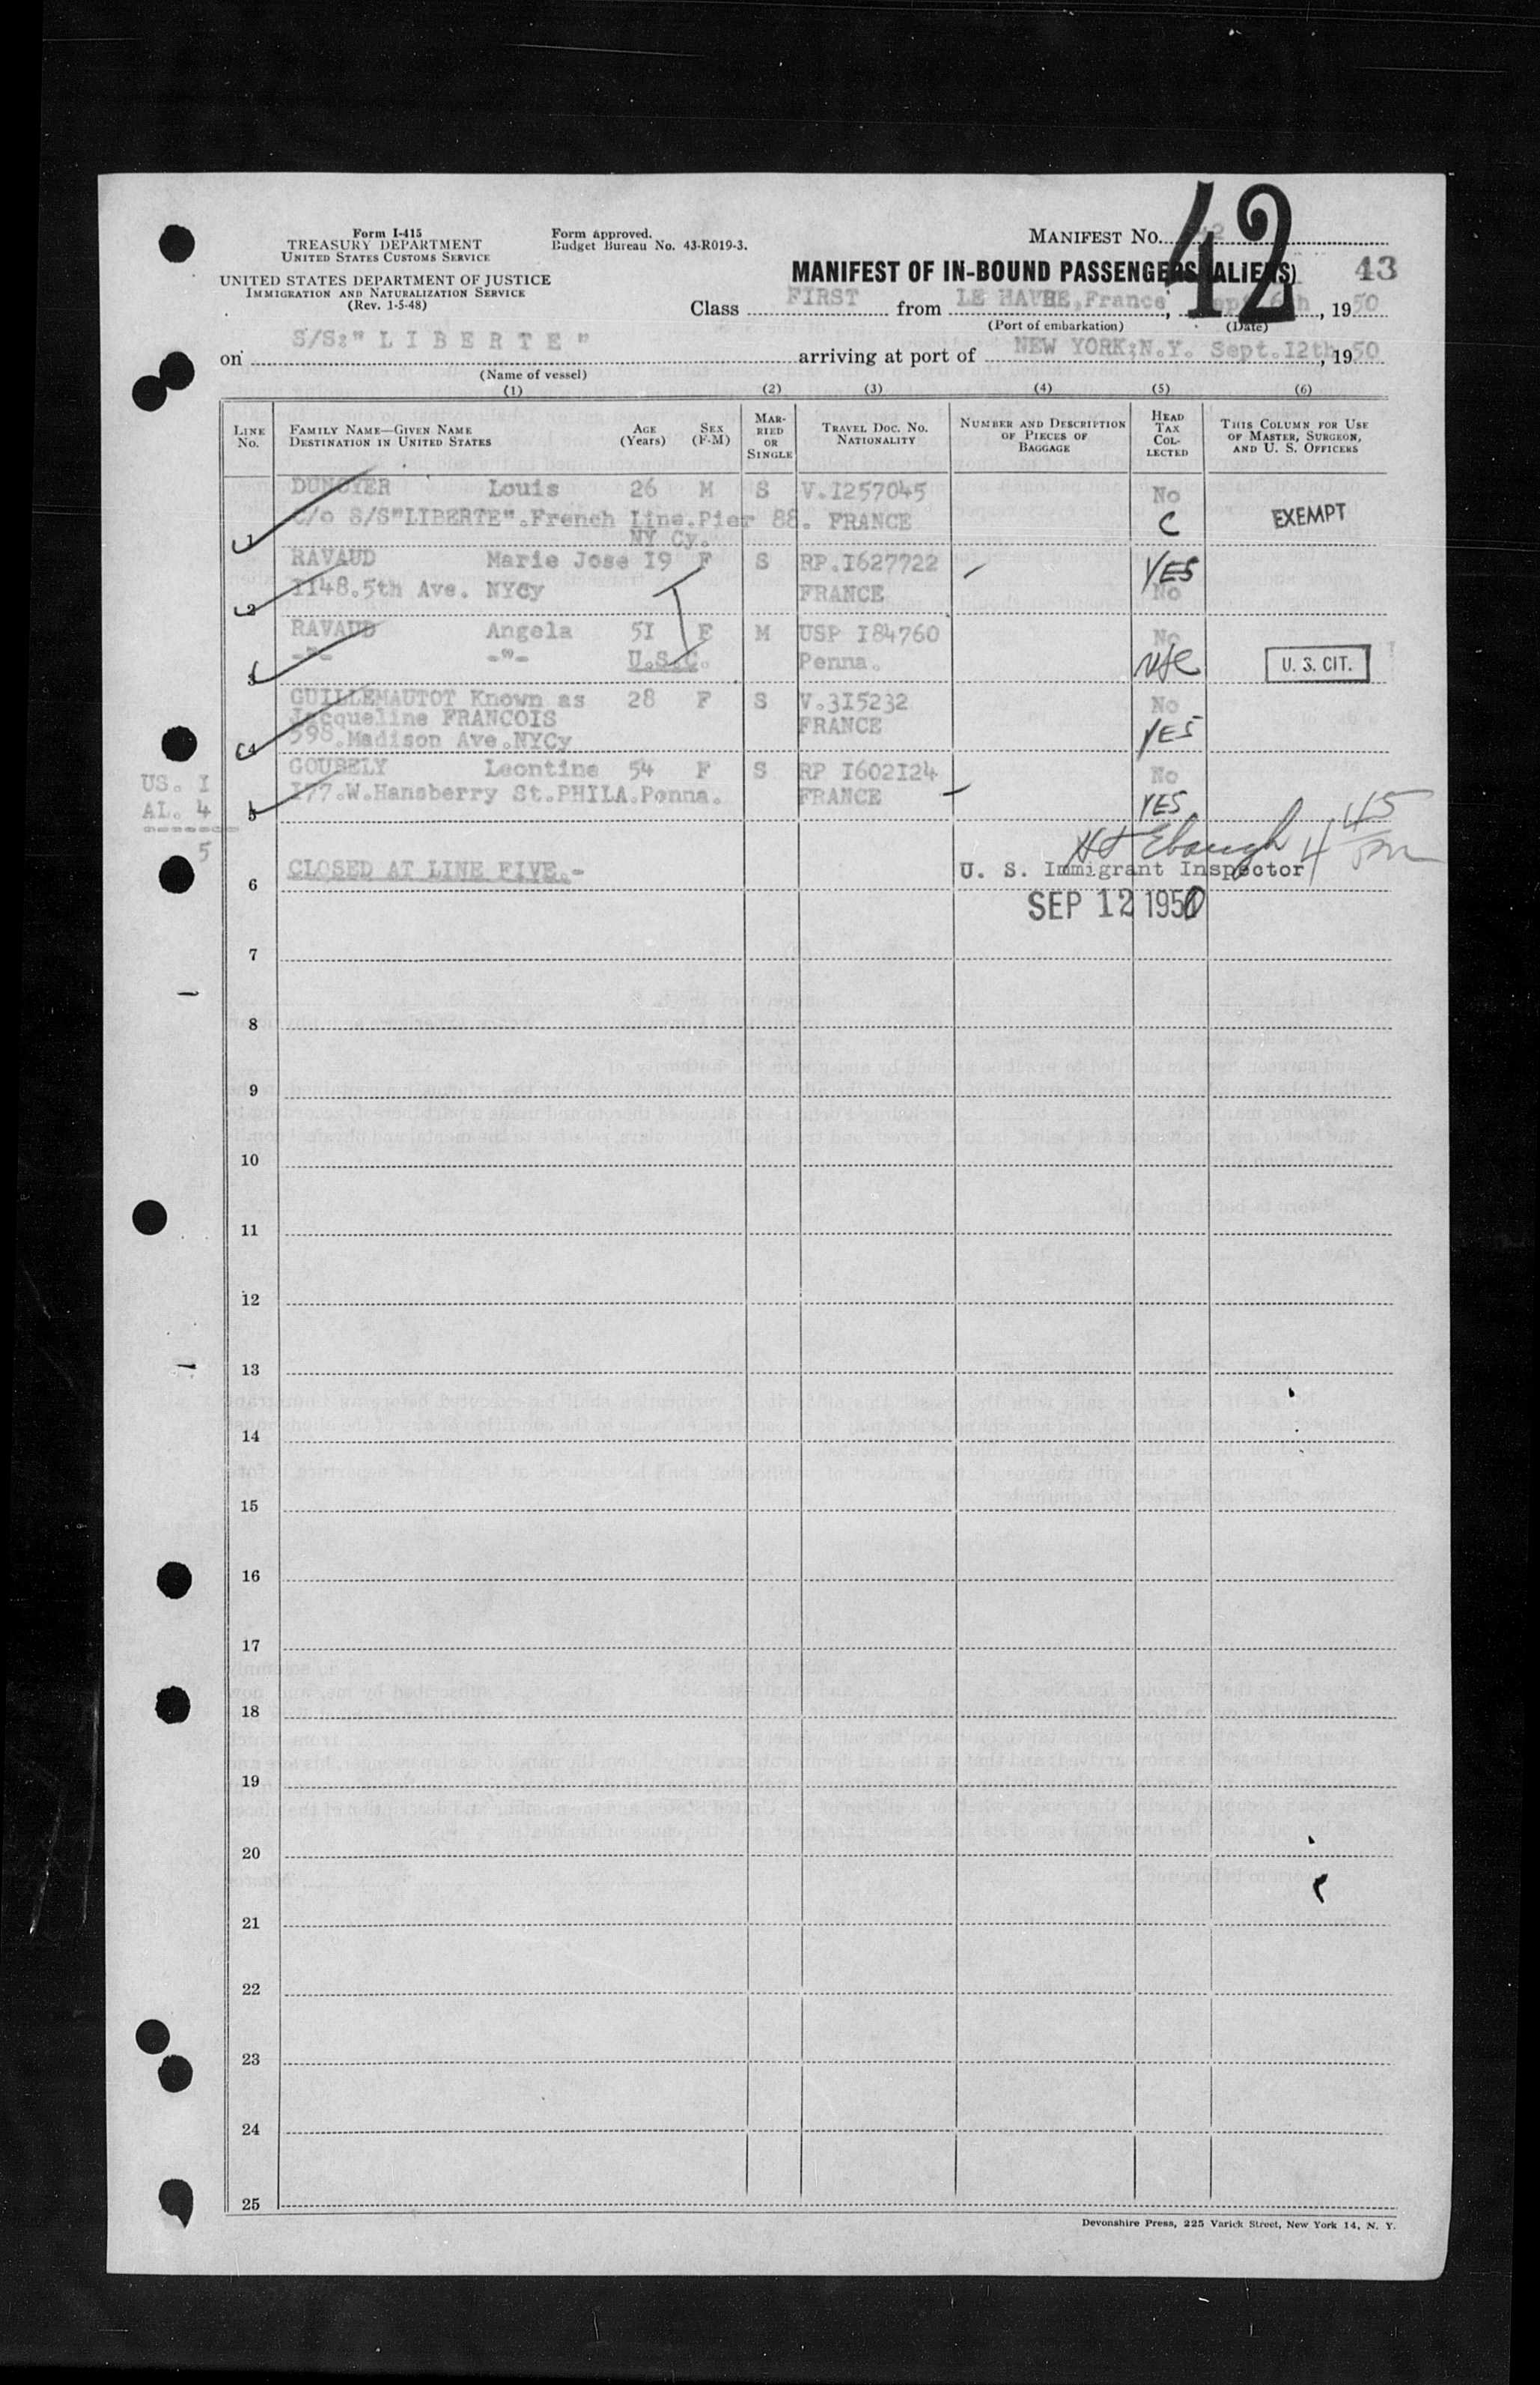 Form I-415
TREASURY DEPARTMENT
UNITED STATES CUSTOMS SERVICE
UNITED STATES DEPARTMENT OF JUSTICE
IMMIGRATION AND NATURALIZATION SERVICE
(Rev. 1-5-48)
Form approved.
Budget Bureau No. 43-R019-3.
MANIFEST No. 42
42
MANIFEST OF IN-BOUND PASSENGERS (ALIENS) 43
Class FIRST from LE HAVRE,France, Sept.6th, 1950
(Port of embarkation) (Date)
on S/S:" L I B E R T E " arriving at port of NEW YORK:N.Y. Sept.12th, 1950
(Name of vessel)
(1) (2) (3) (4) (5) (6)
LINE No.
FAMILY NAME—GIVEN NAME
DESTINATION IN UNITED STATES
AGE (Years)
SEX (F-M)
MARRIED OR SINGLE
TRAVEL DOC. NO.
NATIONALITY
NUMBER AND DESCRIPTION OF PIECES OF BAGGAGE
HEAD TAX COLLECTED
THIS COLUMN FOR USE OF MASTER, SURGEON, AND U. S. OFFICERS
DUNOYER Louis 26 M S V.I257045 No
1 C/o S/S"LIBERTE".French Line.Pier 88. FRANCE C EXEMPT
NY Cy.
RAVAUD Marie Jose I9 F S RP.I627722 YES
2 II48.5th Ave. NYCy FRANCE No
RAVAUD Angela 5I F M USP I84760 No
3 -"- -"- U.S.C. Penna. USC U. S. CIT. I
GUILLEMAUTOT Known as 28 F S V.3I5232 No
Jacqueline FRANCOIS FRANCE
4 598.Madison Ave.NYCy YES
GOUBELY Leontine 54 F S RP I602I24 No
5 I77.W.Hansberry St.PHILA.Penna. FRANCE YES
US. I
AL. 4
-------
5
6 CLOSED AT LINE FIVE.-
4 45 pm
U. S. Immigrant Inspector
SEP 12 1950
7
8
9
10
11
12
13
14
15
16
17
18
19
20
21
22
23
24
25
Devonshire Press, 225 Varick Street, New York 14, N. Y.